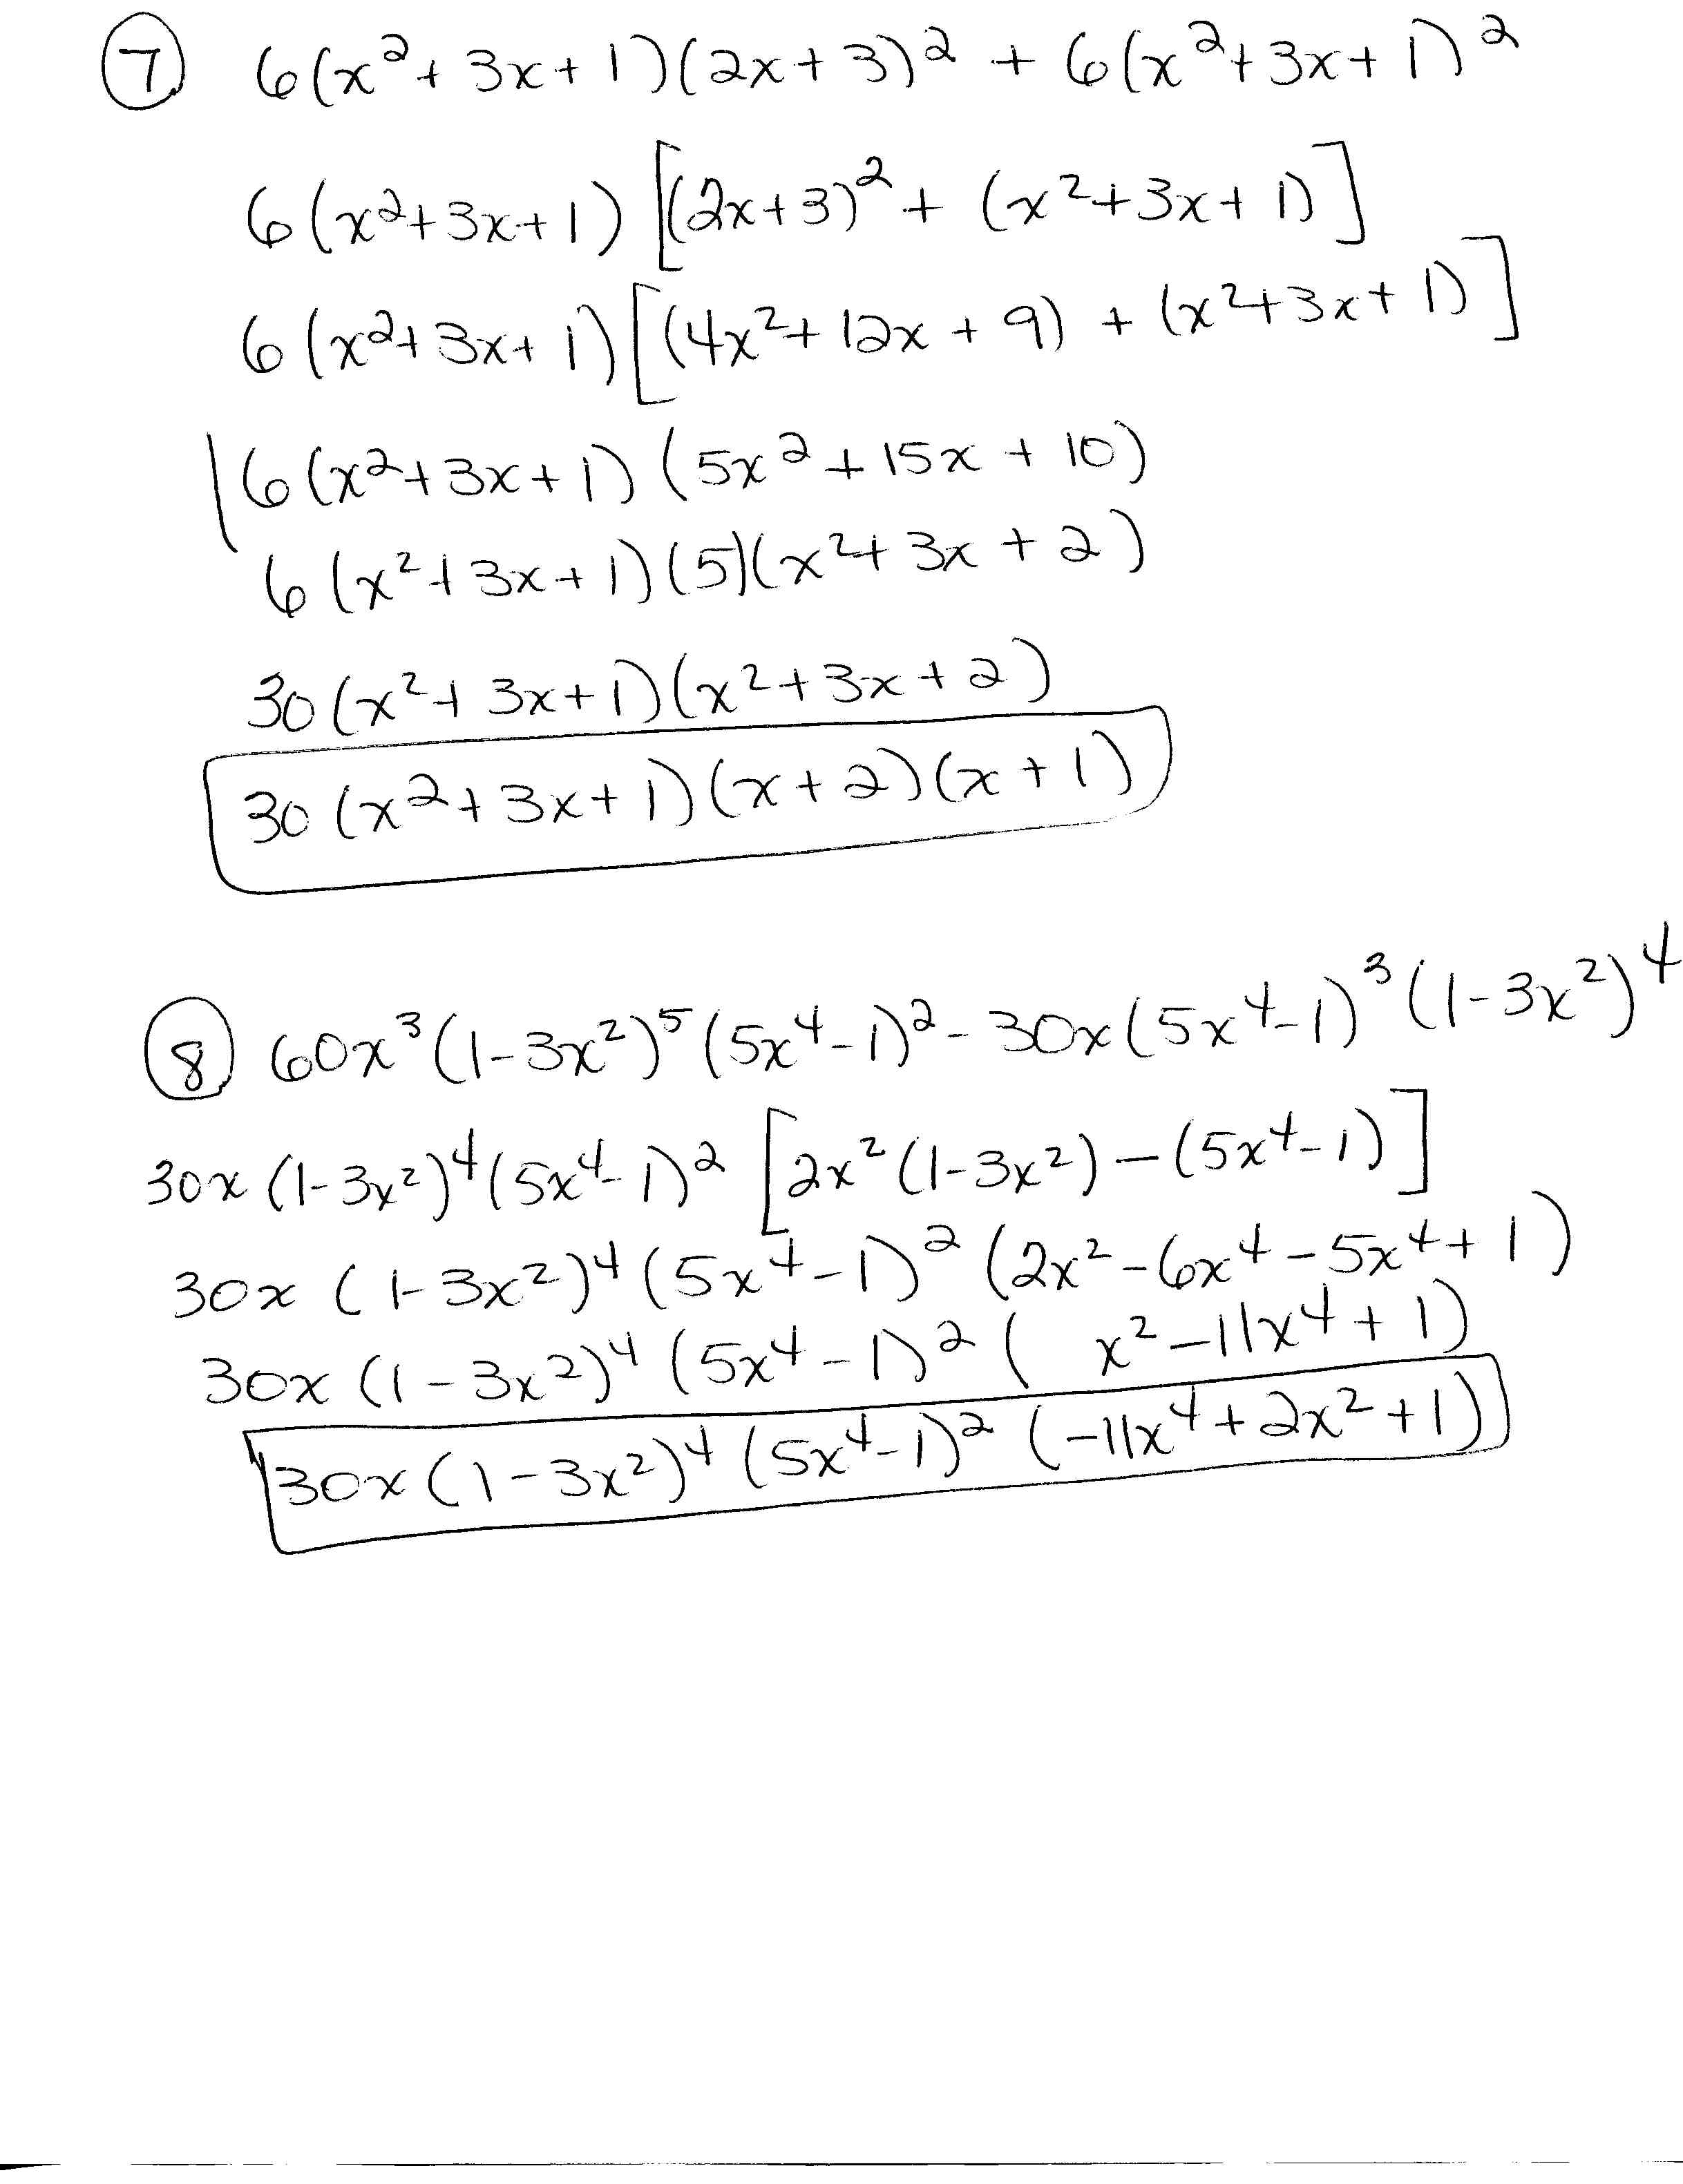 ⑦ 6(x²+3x+1)(2x+3)² + 6(x²+3x+1)²
6(x²+3x+1)[(2x+3)²+(x²+3x+1)]
6(x²+3x+1)[(4x²+12x+9)+(x²+3x+1)]
6(x²+3x+1)(5x²+15x+10)
6(x²+3x+1)(5)(x²+3x+2)
30(x²+3x+1)(x²+3x+2)
30(x²+3x+1)(x+2)(x+1)
⑧ 60x³(1-3x²)⁵(5x⁴-1)²-30x(5x⁴-1)³(1-3x²)⁴
30x(1-3x²)⁴(5x⁴-1)²[2x²(1-3x²)-(5x⁴-1)]
30x(1-3x²)⁴(5x⁴-1)²(2x²-6x⁴-5x⁴+1)
30x(1-3x²)⁴(5x⁴-1)²( x²-11x⁴+1)
30x(1-3x²)⁴(5x⁴-1)²(-11x⁴+2x²+1)